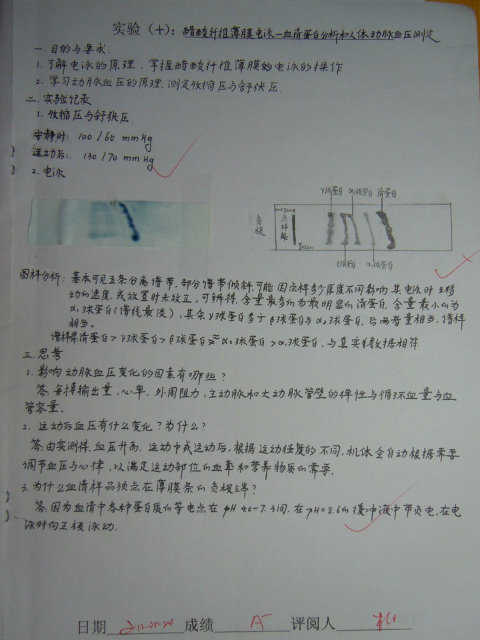 实验(十): 醋酸纤维薄膜电泳—血清蛋白分析和人体动脉血压测定
一.目的与要求.
1.了解电泳的原理,掌握醋酸纤维薄膜的电泳的操作
2.学习动脉血压的原理.测定收缩压与舒张压.
二.实验记录
1.收缩压与舒张压.
安静时: 100/60 mmHg
运动后: 130/70 mmHg
2.电泳
γ球蛋白 α2球蛋白 清蛋白
负极
点样处
β球蛋白 α1球蛋白
图样分析: 基本可见五条分离谱带,部分谱带倾斜,可能因点样多少厚度不同影响其电泳时迁移
动的速度,或放置时未放正,可辨得,含量最多的为最明显的清蛋白,含量最小的为
α1球蛋白(谱线最浅),其余γ球蛋白多于β球蛋白与α2球蛋白,后两者量相当,谱样
相当.
谱样为清蛋白>γ球蛋白>β球蛋白≈α2球蛋白>α1球蛋白,与真实数据相符
三.思考
1.影响动脉血压变化的因素有哪些?
答:每搏输出量,心率,外周阻力,主动脉和大动脉管壁的弹性与循环血量与血
管容量.
2.运动后血压有什么变化?为什么?
答:由实测得,血压升高.运动中或运动后,根据运动程度的不同,机体会自动根据需要
调节血压与心律,以满足运动部位的血氧和营养物质的需要.
3.为什么血清样品须点在薄膜条的负极端?
答:因为血清中各种蛋白质的等电点在pH4.0~7.3间,在pH=8.6的缓冲液中带负电,在电
泳时向正极泳动.
日期 2012.05.24 成绩 A- 评阅人